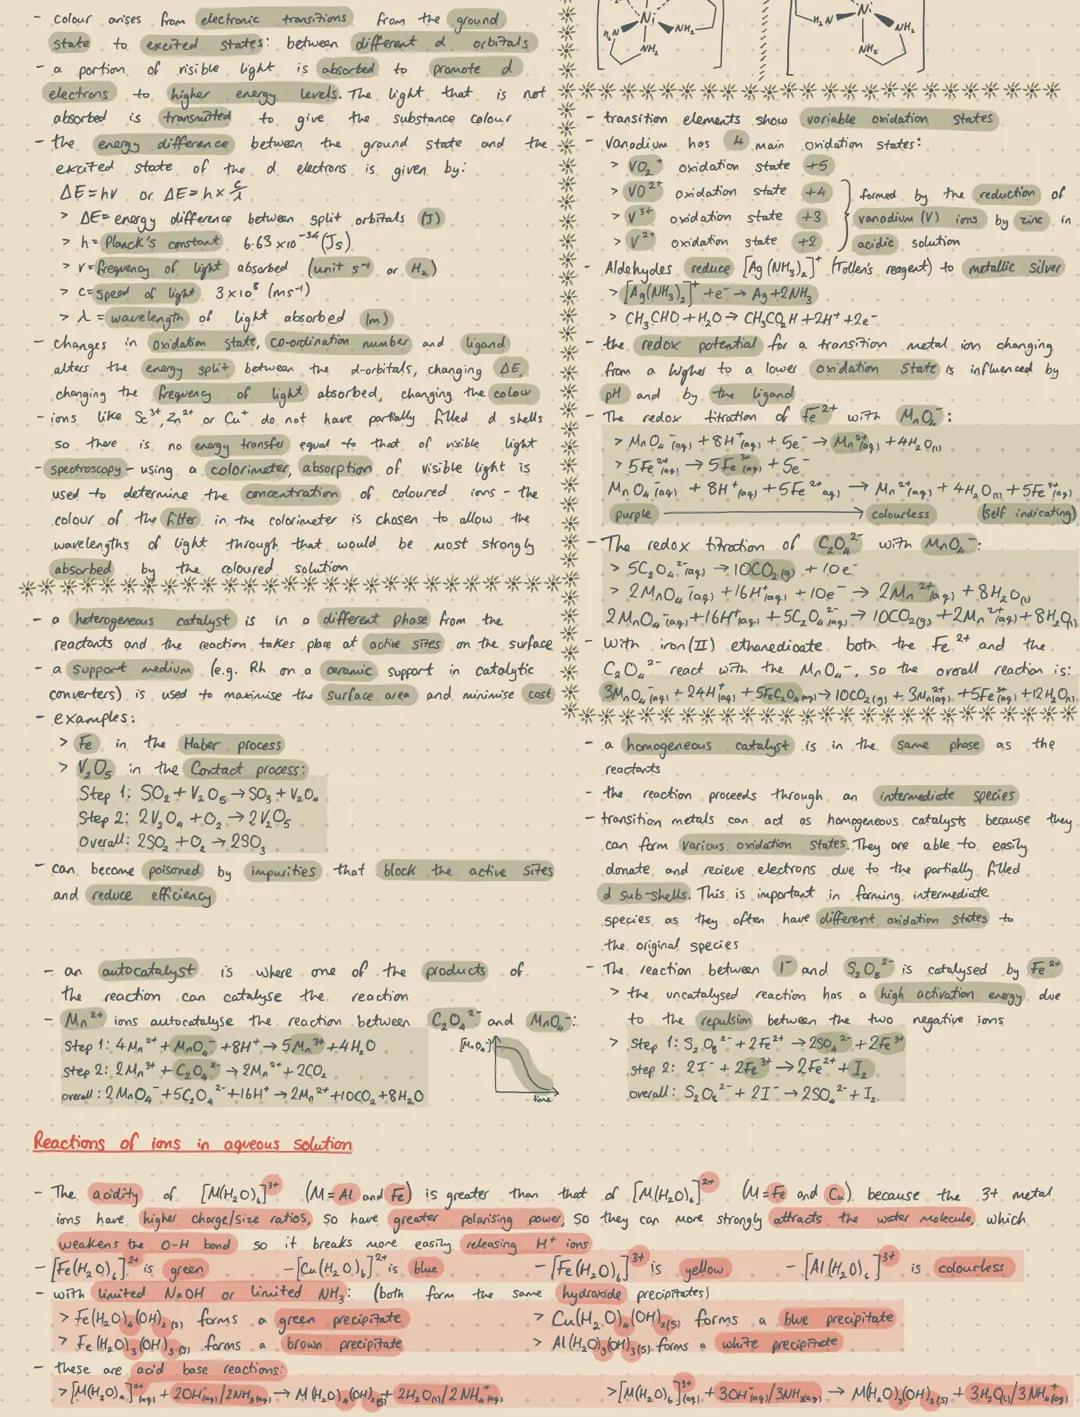 - colour arises from electronic transitions from the ground
state to excited states: between different d orbitals
- a portion of visible light is absorbed to promote d
electrons to higher energy levels. The light that is not
absorbed is transmitted to give the substance colour
- the energy difference between the ground state and the
excited state of the d electrons is given by:
ΔE = hv or ΔE = h × c/λ
> ΔE = energy difference between split orbitals (J)
> h = Planck's constant 6.63 ×10⁻³⁴ (Js)
> v = frequency of light absorbed (unit s⁻¹ or Hz)
> c = speed of light 3×10⁸ (ms⁻¹)
> λ = wavelength of light absorbed (m)
- changes in oxidation state, co-ordination number and ligand
alters the energy split between the d-orbitals, changing ΔE,
changing the frequency of light absorbed, changing the colour
- ions like Sc³⁺, Zn²⁺ or Cu⁺ do not have partially filled d shells
so there is no energy transfer equal to that of visible light
- spectroscopy - using a colorimeter, absorption of visible light is
used to determine the concentration of coloured ions - the
colour of the filter in the colorimeter is chosen to allow the
wavelengths of light through that would be most strongly
absorbed by the coloured solution
- a heterogeneous catalyst is in a different phase from the
reactants and the reaction takes place at active sites on the surface
- a support medium (e.g. Rh on a ceramic support in catalytic
converters) is used to maximise the surface area and minimise cost
- examples:
> Fe in the Haber process
> V₂O₅ in the Contact process:
Step 1: SO₂ + V₂O₅ → SO₃ + V₂O₄
Step 2: 2V₂O₄ + O₂ → 2V₂O₅
Overall: 2SO₂ + O₂ → 2SO₃
- can become poisoned by impurities that block the active sites
and reduce efficiency
- an autocatalyst is where one of the products of
the reaction can catalyse the reaction
- Mn²⁺ ions autocatalyse the reaction between C₂O₄²⁻ and MnO₄⁻:
Step 1: 4Mn²⁺ + MnO₄⁻ + 8H⁺ → 5Mn³⁺ + 4H₂O
step 2: 2Mn³⁺ + C₂O₄²⁻ → 2Mn²⁺ + 2CO₂
overall: 2MnO₄⁻ + 5C₂O₄²⁻ + 16H⁺ → 2Mn²⁺ + 10CO₂ + 8H₂O
[MnO₄⁻]
time
Ni
H₂N
NH₂
NH₂
Ni
H₂N
NH₂
NH₂
- transition elements show variable oxidation states
- vanadium has 4 main oxidation states:
> VO₂⁺ oxidation state +5
> VO²⁺ oxidation state +4
> V³⁺ oxidation state +3
> V²⁺ oxidation state +2
formed by the reduction of
vanadium (V) ions by zinc in
acidic solution
- Aldehydes reduce [Ag(NH₃)₂]⁺ (Tollen's reagent) to metallic silver
> [Ag(NH₃)₂]⁺ + e⁻ → Ag + 2NH₃
> CH₃CHO + H₂O → CH₃CO₂H + 2H⁺ + 2e⁻
- the redox potential for a transition metal ion changing
from a higher to a lower oxidation state is influenced by
pH and by the ligand
- The redox titration of Fe²⁺ with MnO₄⁻:
> MnO₄⁻(aq) + 8H⁺(aq) + 5e⁻ → Mn²⁺(aq) + 4H₂O(l)
> 5Fe²⁺(aq) → 5Fe³⁺(aq) + 5e⁻
MnO₄⁻(aq) + 8H⁺(aq) + 5Fe²⁺(aq) → Mn²⁺(aq) + 4H₂O(l) + 5Fe³⁺(aq)
purple → colourless (self indicating)
- The redox titration of C₂O₄²⁻ with MnO₄⁻:
> 5C₂O₄²⁻(aq) → 10CO₂(g) + 10e⁻
> 2MnO₄⁻(aq) + 16H⁺(aq) + 10e⁻ → 2Mn²⁺(aq) + 8H₂O(l)
2MnO₄⁻(aq) + 16H⁺(aq) + 5C₂O₄²⁻(aq) → 10CO₂(g) + 2Mn²⁺(aq) + 8H₂O(l)
- With iron(II) ethanedioate both the Fe²⁺ and the
C₂O₄²⁻ react with the MnO₄⁻, so the overall reaction is:
3MnO₄⁻(aq) + 24H⁺(aq) + 5FeC₂O₄(aq) → 10CO₂(g) + 3Mn²⁺(aq) + 5Fe³⁺(aq) + 12H₂O(l)
- a homogeneous catalyst is in the same phase as the
reactants
- the reaction proceeds through an intermediate species
- transition metals can act as homogeneous catalysts because they
can form various oxidation states. They are able to easily
donate and recieve electrons due to the partially filled
d sub-shells. This is important in forming intermediate
species as they often have different oxidation states to
the original species
- The reaction between I⁻ and S₂O₈²⁻ is catalysed by Fe²⁺
> the uncatalysed reaction has a high activation energy due
to the repulsion between the two negative ions
> step 1: S₂O₈²⁻ + 2Fe²⁺ → 2SO₄²⁻ + 2Fe³⁺
step 2: 2I⁻ + 2Fe³⁺ → 2Fe²⁺ + I₂
overall: S₂O₈²⁻ + 2I⁻ → 2SO₄²⁻ + I₂
Reactions of ions in aqueous solution
- The acidity of [M(H₂O)₆]³⁺ (M = Al and Fe) is greater than that of [M(H₂O)₆]²⁺ (M = Fe and Cu) because the 3+ metal
ions have higher charge/size ratios, so have greater polarising power, so they can more strongly attracts the water molecule, which
weakens the O-H bond so it breaks more easily releasing H⁺ ions
- [Fe(H₂O)₆]²⁺ is green - [Cu(H₂O)₆]²⁺ is blue - [Fe(H₂O)₆]³⁺ is yellow - [Al(H₂O)₆]³⁺ is colourless
- with limited NaOH or limited NH₃: (both form the same hydroxide precipitates)
> Fe(H₂O)₄(OH)₂(s) forms a green precipitate > Cu(H₂O)₄(OH)₂(s) forms a blue precipitate
> Fe(H₂O)₃(OH)₃(s) forms a brown precipitate > Al(H₂O)₃(OH)₃(s) forms a white precipitate
- these are acid base reactions:
> [M(H₂O)₆]²⁺(aq) + 2OH⁻(aq)/2NH₃(aq) → M(H₂O)₄(OH)₂(s) + 2H₂O(l)/2NH₄⁺(aq) > [M(H₂O)₆]³⁺(aq) + 3OH⁻(aq)/3NH₃(aq) → M(H₂O)₃(OH)₃(s) + 3H₂O(l)/3NH₄⁺(aq)